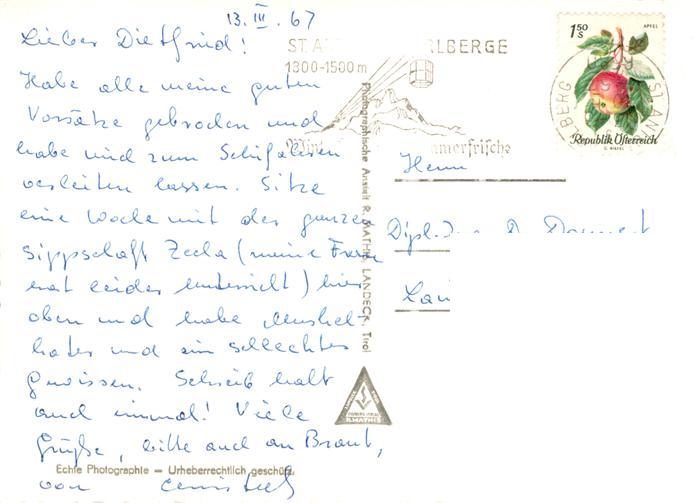 13. III. 67
Lieber Dietfried!
Habe alle meine guten
Vorsätze gebrochen und
habe mich zum Schifahren
verleiten lassen. Sitze
eine Woche mit der ganzen
Sippschaft Zecha (meine Frau
hat leider Unterricht) hier
oben und habe Muskel-
kater und ein schlechtes
Gewissen. Schreib halt
auch einmal! Viele
Grüße, bitte auch an Braut,
von
Echte Photographie — Urheberrechtlich geschützt
Photographische Anstalt R. MATHIS, LANDECK, Tirol
R. MATHIS
ST. A LBERGE
1300-1500 m
Win merfrische
1 50 S
APFEL
Republik Österreich
BERG
ST. AN
Herrn
Dipl.-